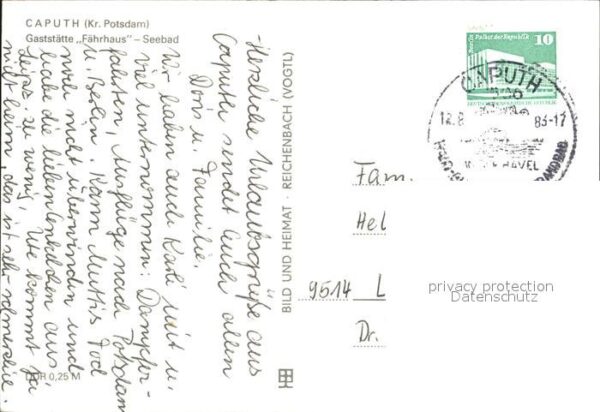 CAPUTH (Kr. Potsdam)
Gaststätte „Fährhaus" – Seebad
Herzliche Urlaubsgrüße aus
Caputh sendet Euch allen
Doris u. Familie.
Wir haben auch Karli mit u.
viel unternommen: Dampfer-
fahrten, Ausflüge nach Potsdam
u. Berlin. Kann Muttis Tod
noch nicht überwinden und
habe die lieben Enkelchen aus
zu wenig, Ute kommt ja
nicht heim, das ist sehr
DDR 0,25 M
BILD UND HEIMAT · REICHENBACH (VOGTL)
Berlin Palast der Republik
10
DEUTSCHE DEMOKRATISCHE REPUBLIK
CAPUTH
12.8
83-17
HAVEL
Fam.
Hel
9514 L
Dr.
privacy protection
Datenschutz